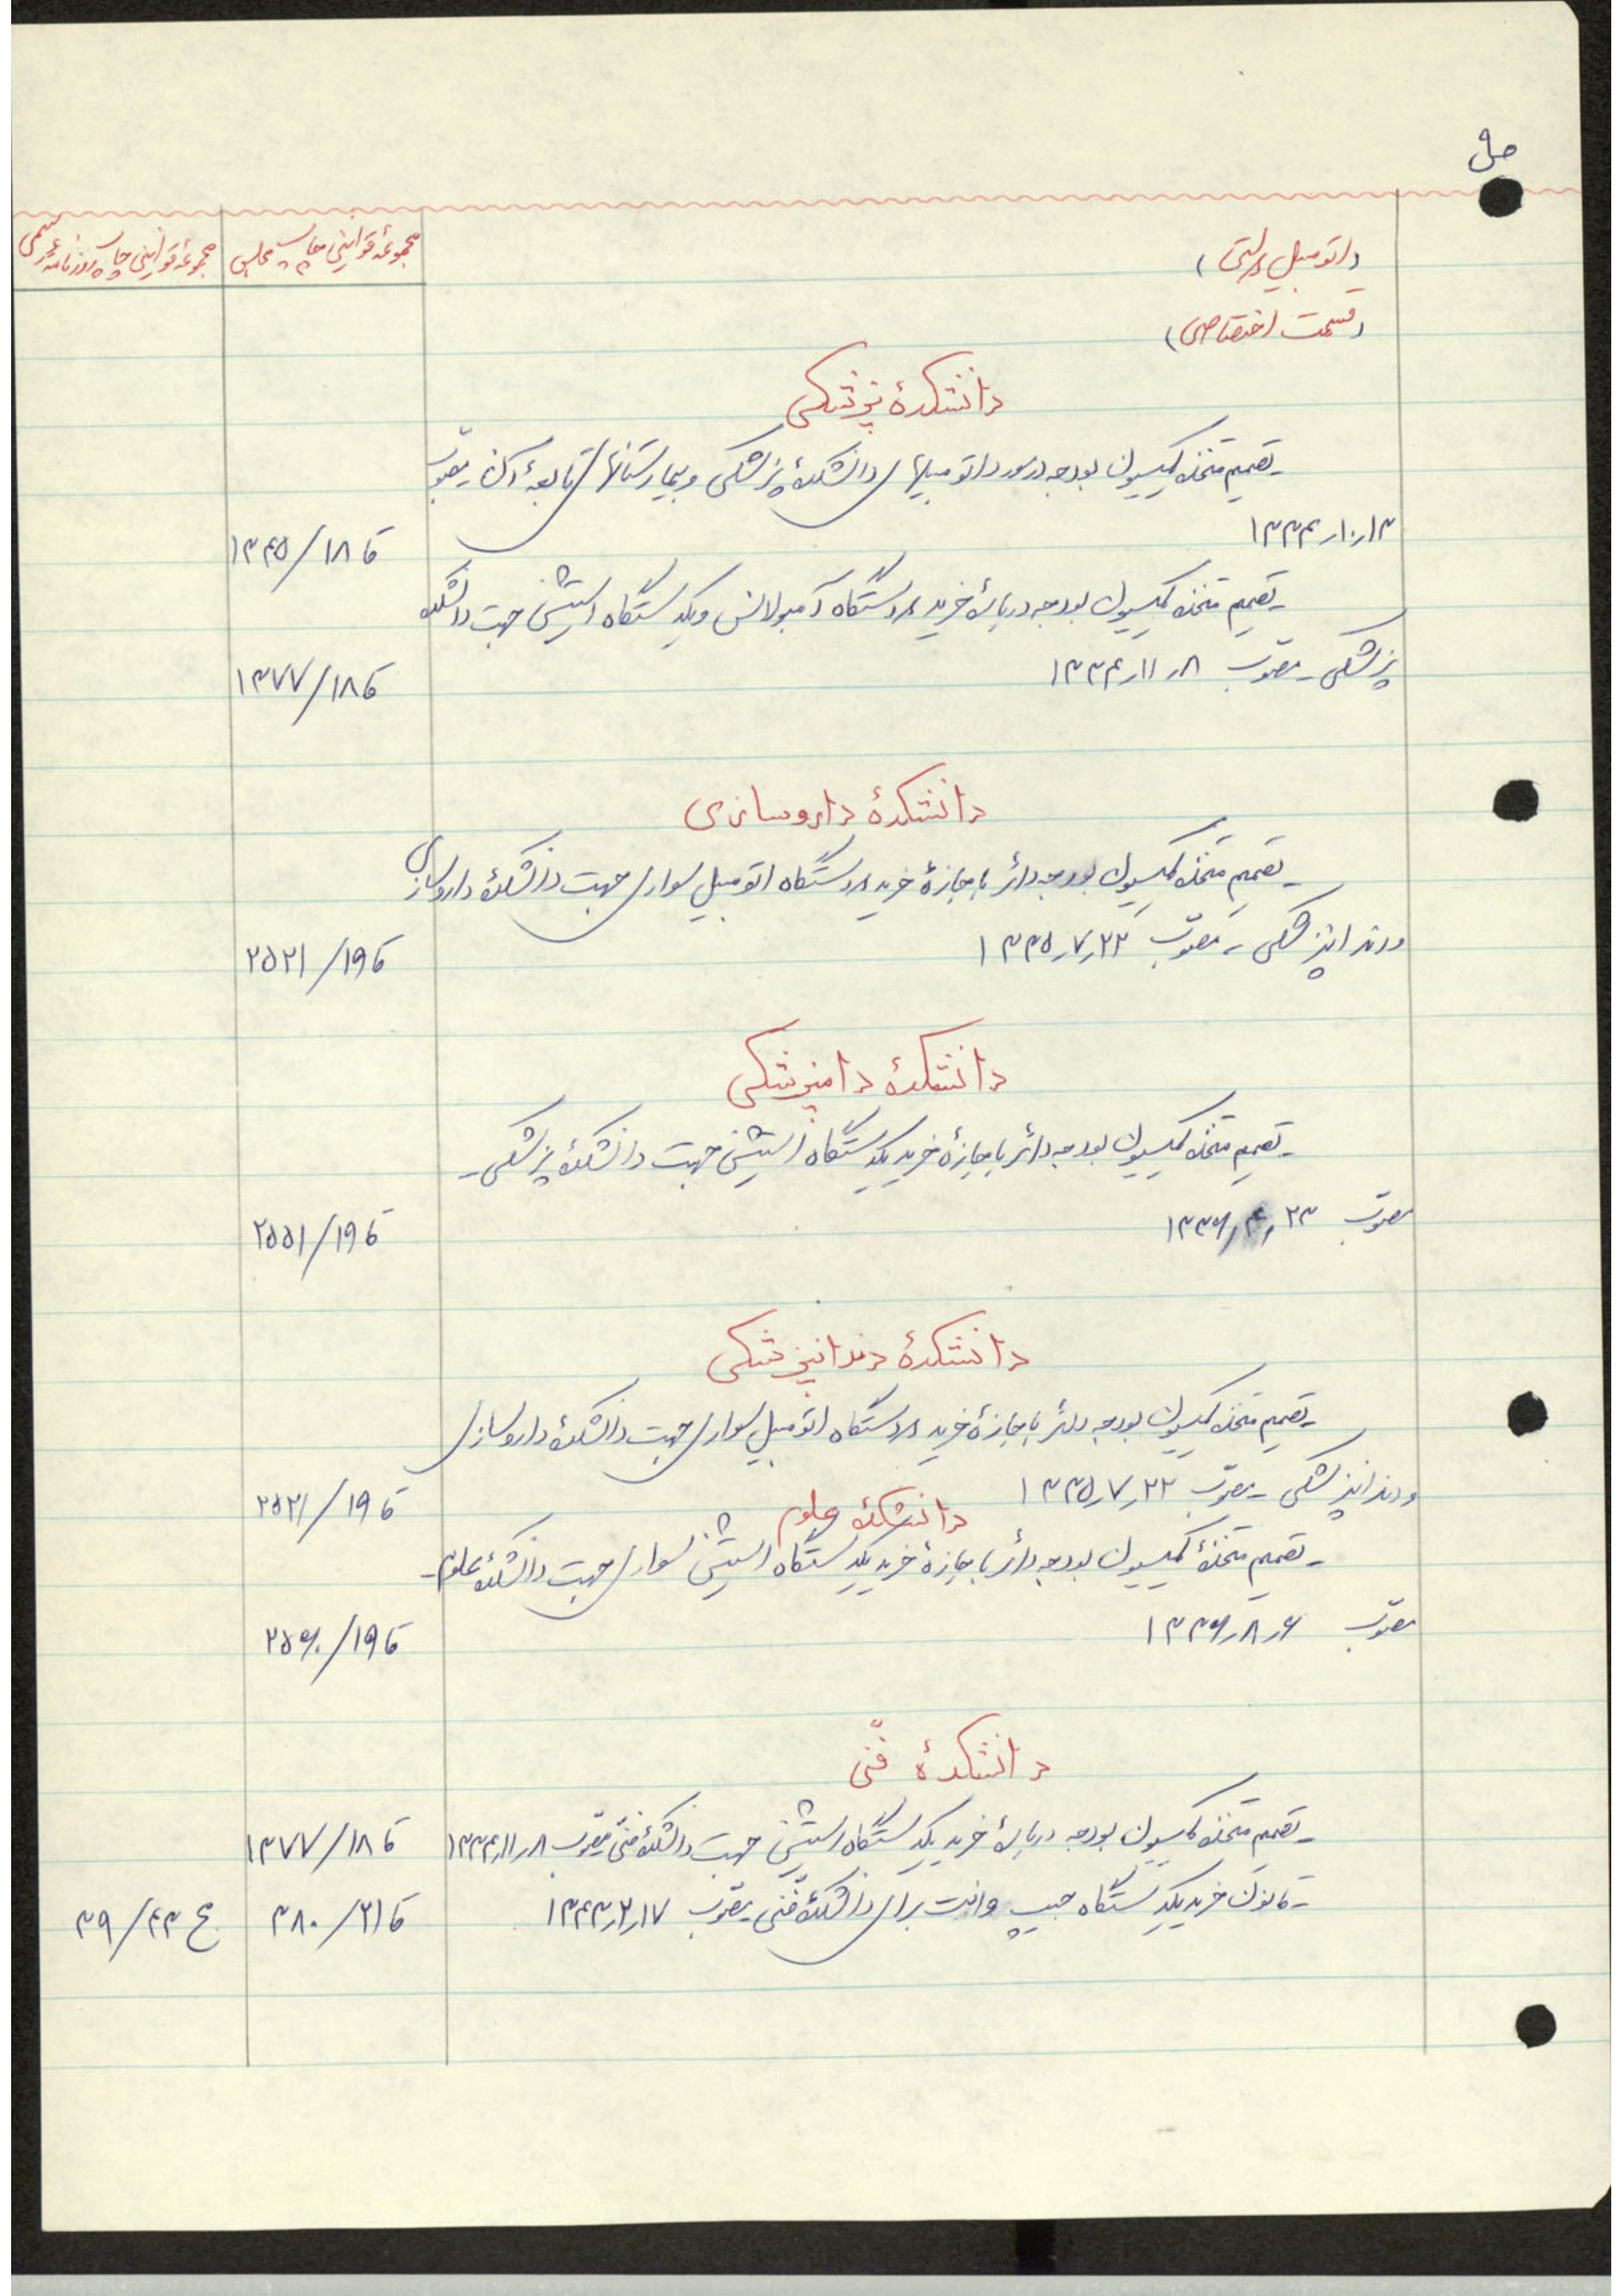 ص ۹
(اتومبیل دولتی)
مجموعهٔ قوانین چاپ مجلس
مجموعهٔ قوانین چاپ روزنامه رسمی
(قسمت اختصاصی)
دانشکدهٔ پزشکی
ـ تصمیم متخذه کمیسیون بودجه در مورد اتومبیلهای دانشکدهٔ پزشکی و بیمارستانهای تابعهٔ آن ـ مصوب
۱۳ر۱۰ر۱۳۳۴ ق ۱۸/۱۳۴۵
ـ تصمیم متخذه کمیسیون بودجه دربارهٔ خرید ۲ دستگاه آمبولانس و یکدستگاه استیشن جهت دانشکده
پزشکی ـ مصوب ۸ر۱۱ر۱۳۳۴ ق ۱۸/۱۳۷۷
دانشکدهٔ داروسازی
ـ تصمیم متخذه کمیسیون بودجه دائر باجازهٔ خرید ۲ دستگاه اتومبیل سواری جهت دانشکدهٔ داروسازی
ودندانپزشکی ـ مصوب ۲۲ر۷ر۱۳۳۵ ق ۱۹/۲۵۲۱
دانشکدهٔ دامپزشکی
ـ تصمیم متخذه کمیسیون بودجه دائر باجازهٔ خرید یکدستگاه استیشن جهت دانشکدهٔ پزشکی ـ
مصوب ۲۳ر۴ر۱۳۳۶ ق ۱۹/۲۵۵۱
دانشکدهٔ دندانپزشکی
ـ تصمیم متخذه کمیسیون بودجه دائر باجازهٔ خرید ۲ دستگاه اتومبیل سواری جهت دانشکدهٔ داروسازی
ودندانپزشکی ـ مصوب ۲۲ر۷ر۱۳۳۵ ق ۱۹/۲۵۲۱
دانشکدهٔ علوم
ـ تصمیم متخذهٔ کمیسیون بودجه دائر باجازهٔ خرید یکدستگاه استیشن سواری جهت دانشکدهٔ علوم ـ
مصوب ۶ر۸ر۱۳۳۶ ق ۱۹/۲۵۶۰
دانشکدهٔ فنّی
ـ تصمیم متخذه کمیسیون بودجه دربارهٔ خرید یکدستگاه استیشن جهت دانشکدهٔ فنّی مصوب ۸ر۱۱ر۱۳۳۴ ق ۱۸/۱۳۷۷
ـ قانون خرید یکدستگاه جیپ وانت برای دانشکدهٔ فنّی ـ مصوب ۱۷ر۲ر۱۳۴۳ ق ۲۱/۳۸۰ ج ۴۳/۳۹